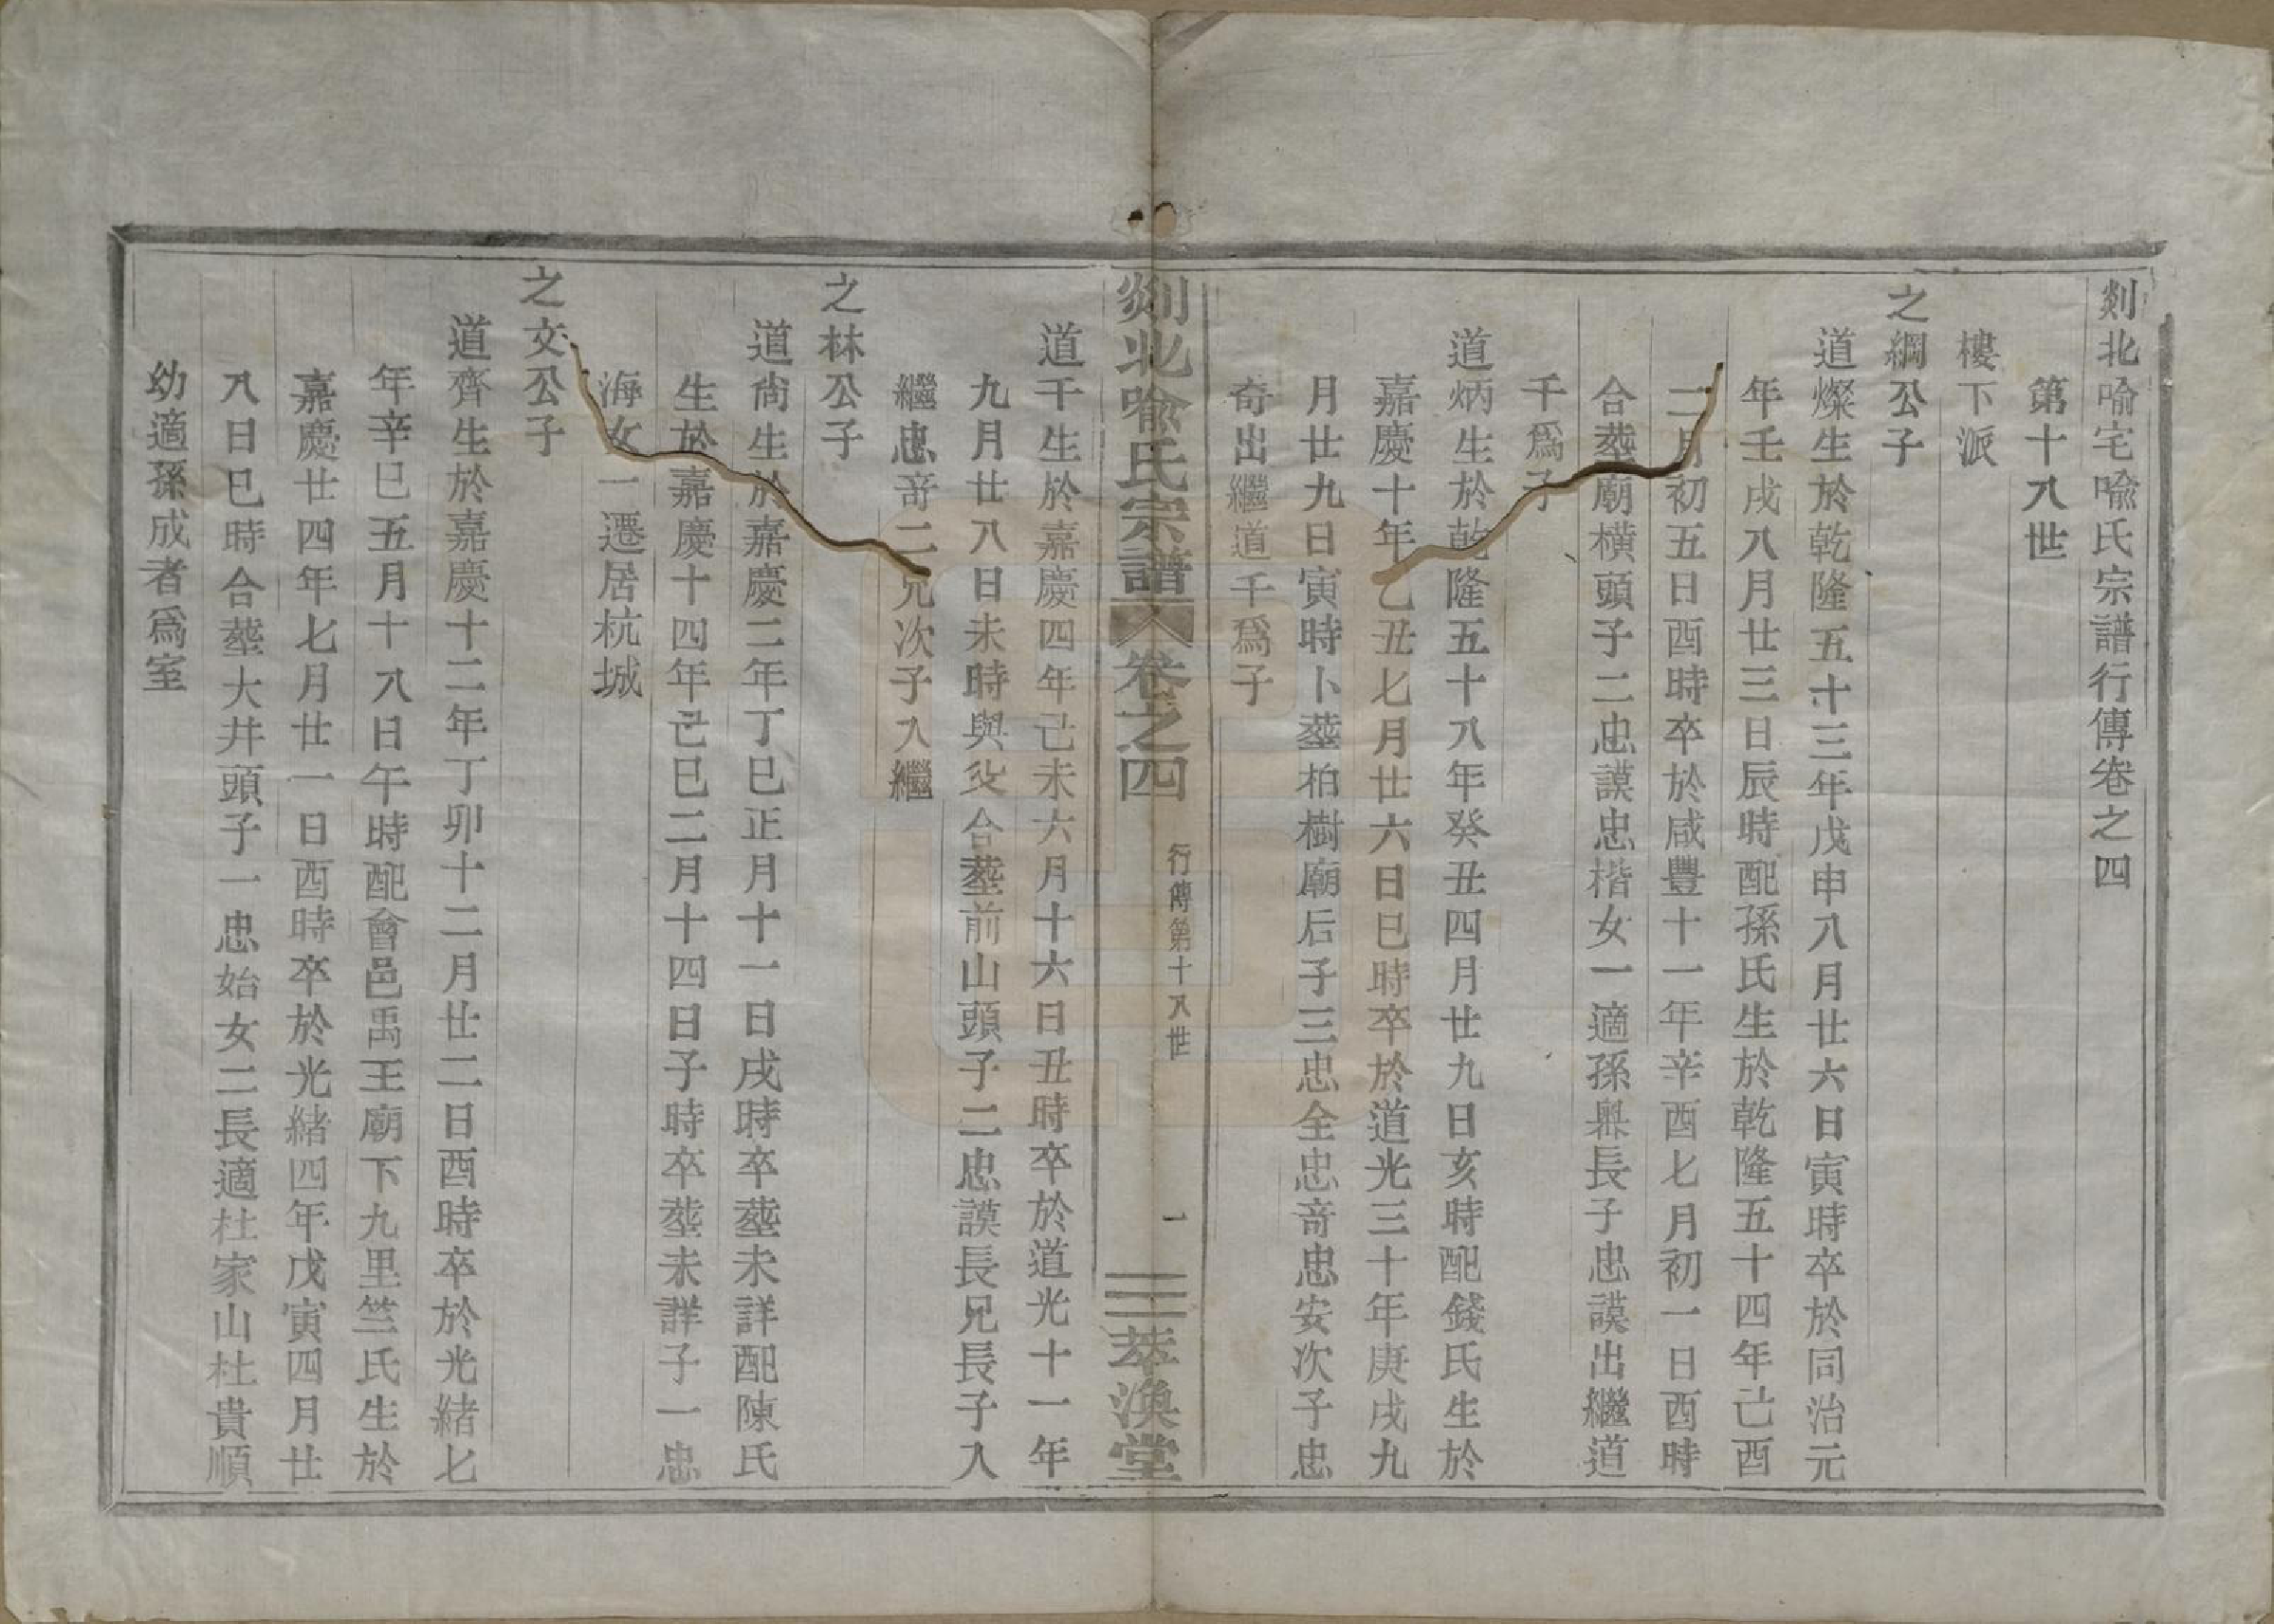 剡北喻宅喻氏宗譜行傳卷之四
第十八世
樓下派
之綱公子
道燦生於乾隆五十三年戊申八月廿六日寅時卒於同治元
年壬戌八月廿三日辰時配孫氏生於乾隆五十四年己酉
二月初五日酉時卒於咸豐十一年辛酉七月初一日酉時
合塟廟橫頭子二忠謨忠楷女一適孫 長子忠謨出繼道
千爲子
道炳生於乾隆五十八年癸丑四月廿九日亥時配錢氏生於
嘉慶十年乙丑七月廿六日巳時卒於道光三十年庚戌九
月廿九日寅時卜塟柏樹廟后子三忠全忠竒忠安次子忠
奇出繼道千爲子
剡北喻氏宗譜 卷之四 行傳第十八世 一 萃渙堂
道千生於嘉慶四年己未六月十六日丑時卒於道光十一年
九月廿八日未時與父合塟前山頭子二忠謨長兄長子入
繼忠竒二兄次子入繼
之林公子
道尙生於嘉慶二年丁巳正月十一日戌時卒塟未詳配陳氏
生於嘉慶十四年己巳二月十四日子時卒塟未詳子一忠
海女一遷居杭城
之文公子
道齊生於嘉慶十二年丁卯十二月廿二日酉時卒於光緒七
年辛巳五月十八日午時配會邑禹王廟下九里竺氏生於
嘉慶廿四年七月廿一日酉時卒於光緒四年戊寅四月廿
八日巳時合塟大井頭子一忠始女二長適杜家山杜貴順
幼適孫成者爲室